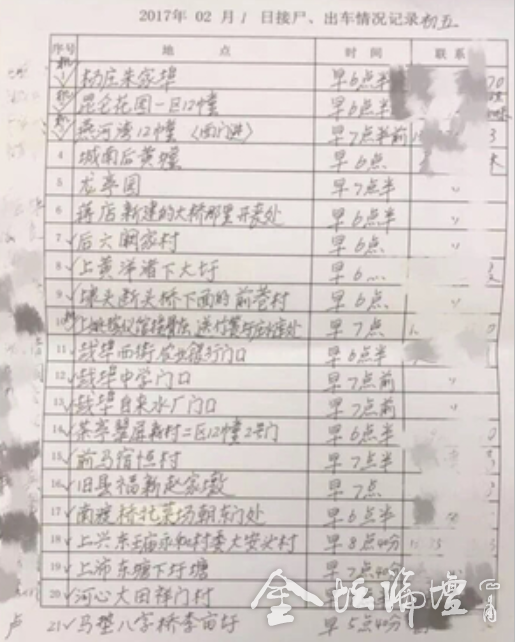 2017年 02 月 1 日接尸、出车情况记录 初五
序号 地 点 时 间 联 系
杨庄朱家埠 早6点半
昆仑花园一区12幢 早6点半
燕河湾12幢 (西门进) 早7点半前
4 城南后黄塘 早6点
5 龙亭园 早7点半 〃
6 蒋店新建的大桥那里开表处 早6点半 〃
7 后六阙家村 早6点 〃
8 上黄洋渚下大圩 早6
9 埭头断头桥下面的前巷村 早6点 〃
10 早7点
11 西街农业银行门口 早6点半
12 中学门口 早7点前 〃
13 自来水厂门口 早7点前 〃
14 茶亭翠屏新村二区12幢2号门 早6点半
15 前马宿恒村 早7点半
16 旧县福新赵家墩 早7点
17 南渡桥北菜场朝东门处 早6点半
18 上兴东王庙永和村委大安头村 早8点40分
19 上沛东塘下圩塘 早7点40分
20 河心大田祥门村
卢 21 马垫八字桥李亩圩 早5点40分
金坛论坛